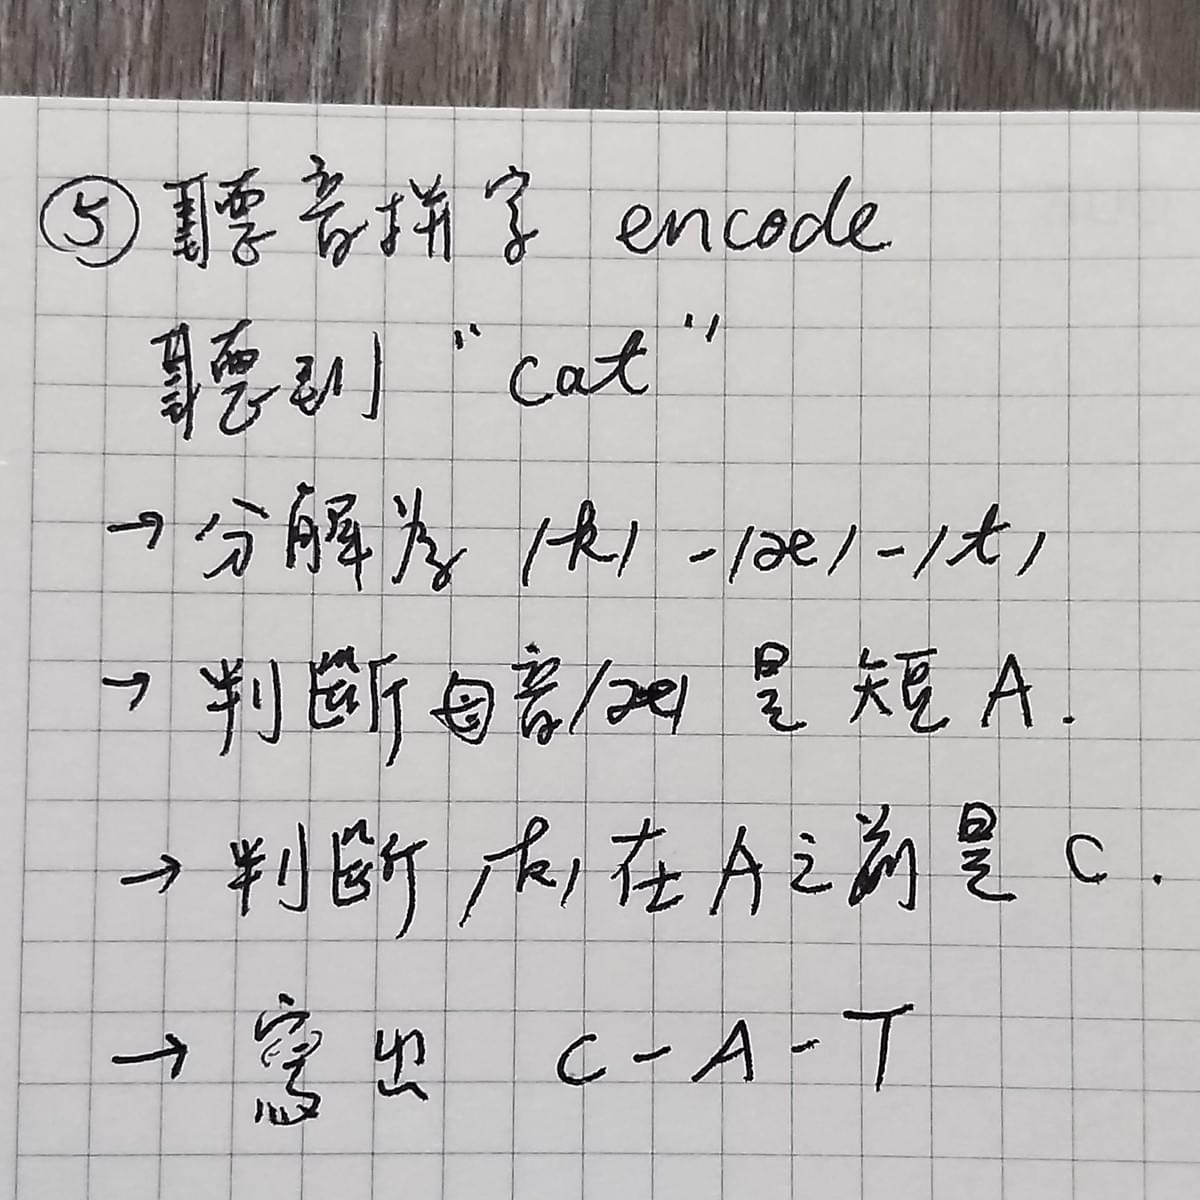 ⑤ 聽音拼字 encode
聽到 "cat"
→ 分解為 /k/ -/æ/ -/t/
→ 判斷母音/æ/ 是短A.
→ 判斷 /k/ 在A之前是 C.
→ 寫出 C-A-T